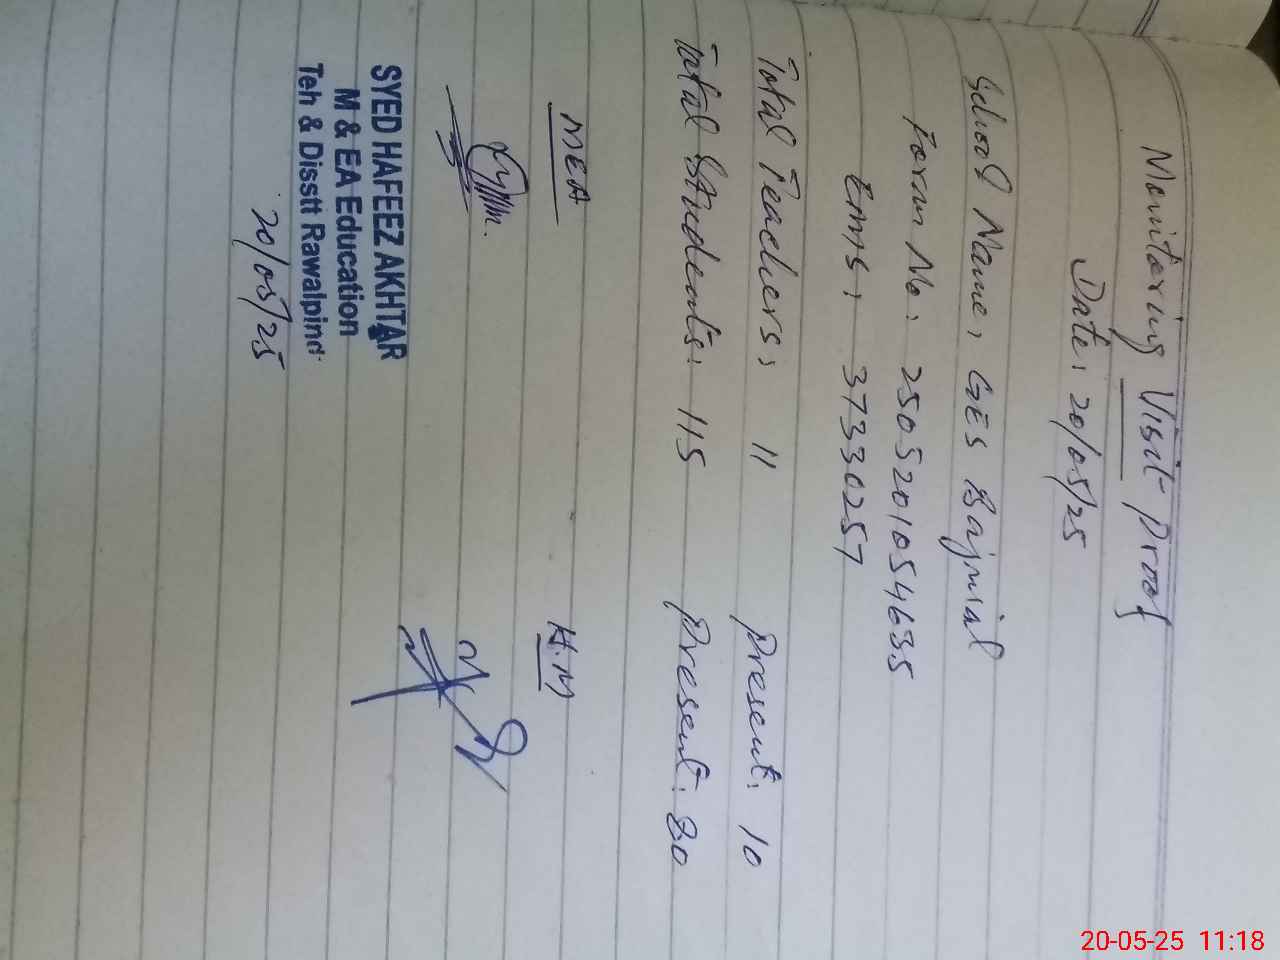 Monitoring Visit Proof
Date: 20/05/25
School Name: GES Bajnial
Form No: 2505201054635
Emis: 37330257
Total Teachers: 11 Present: 10
Total Students: 115 Present: 80
MEA H.M
SYED HAFEEZ AKHTAR
M & EA Education
Teh & Disstt Rawalpindi
20/05/25
20-05-25 11:18